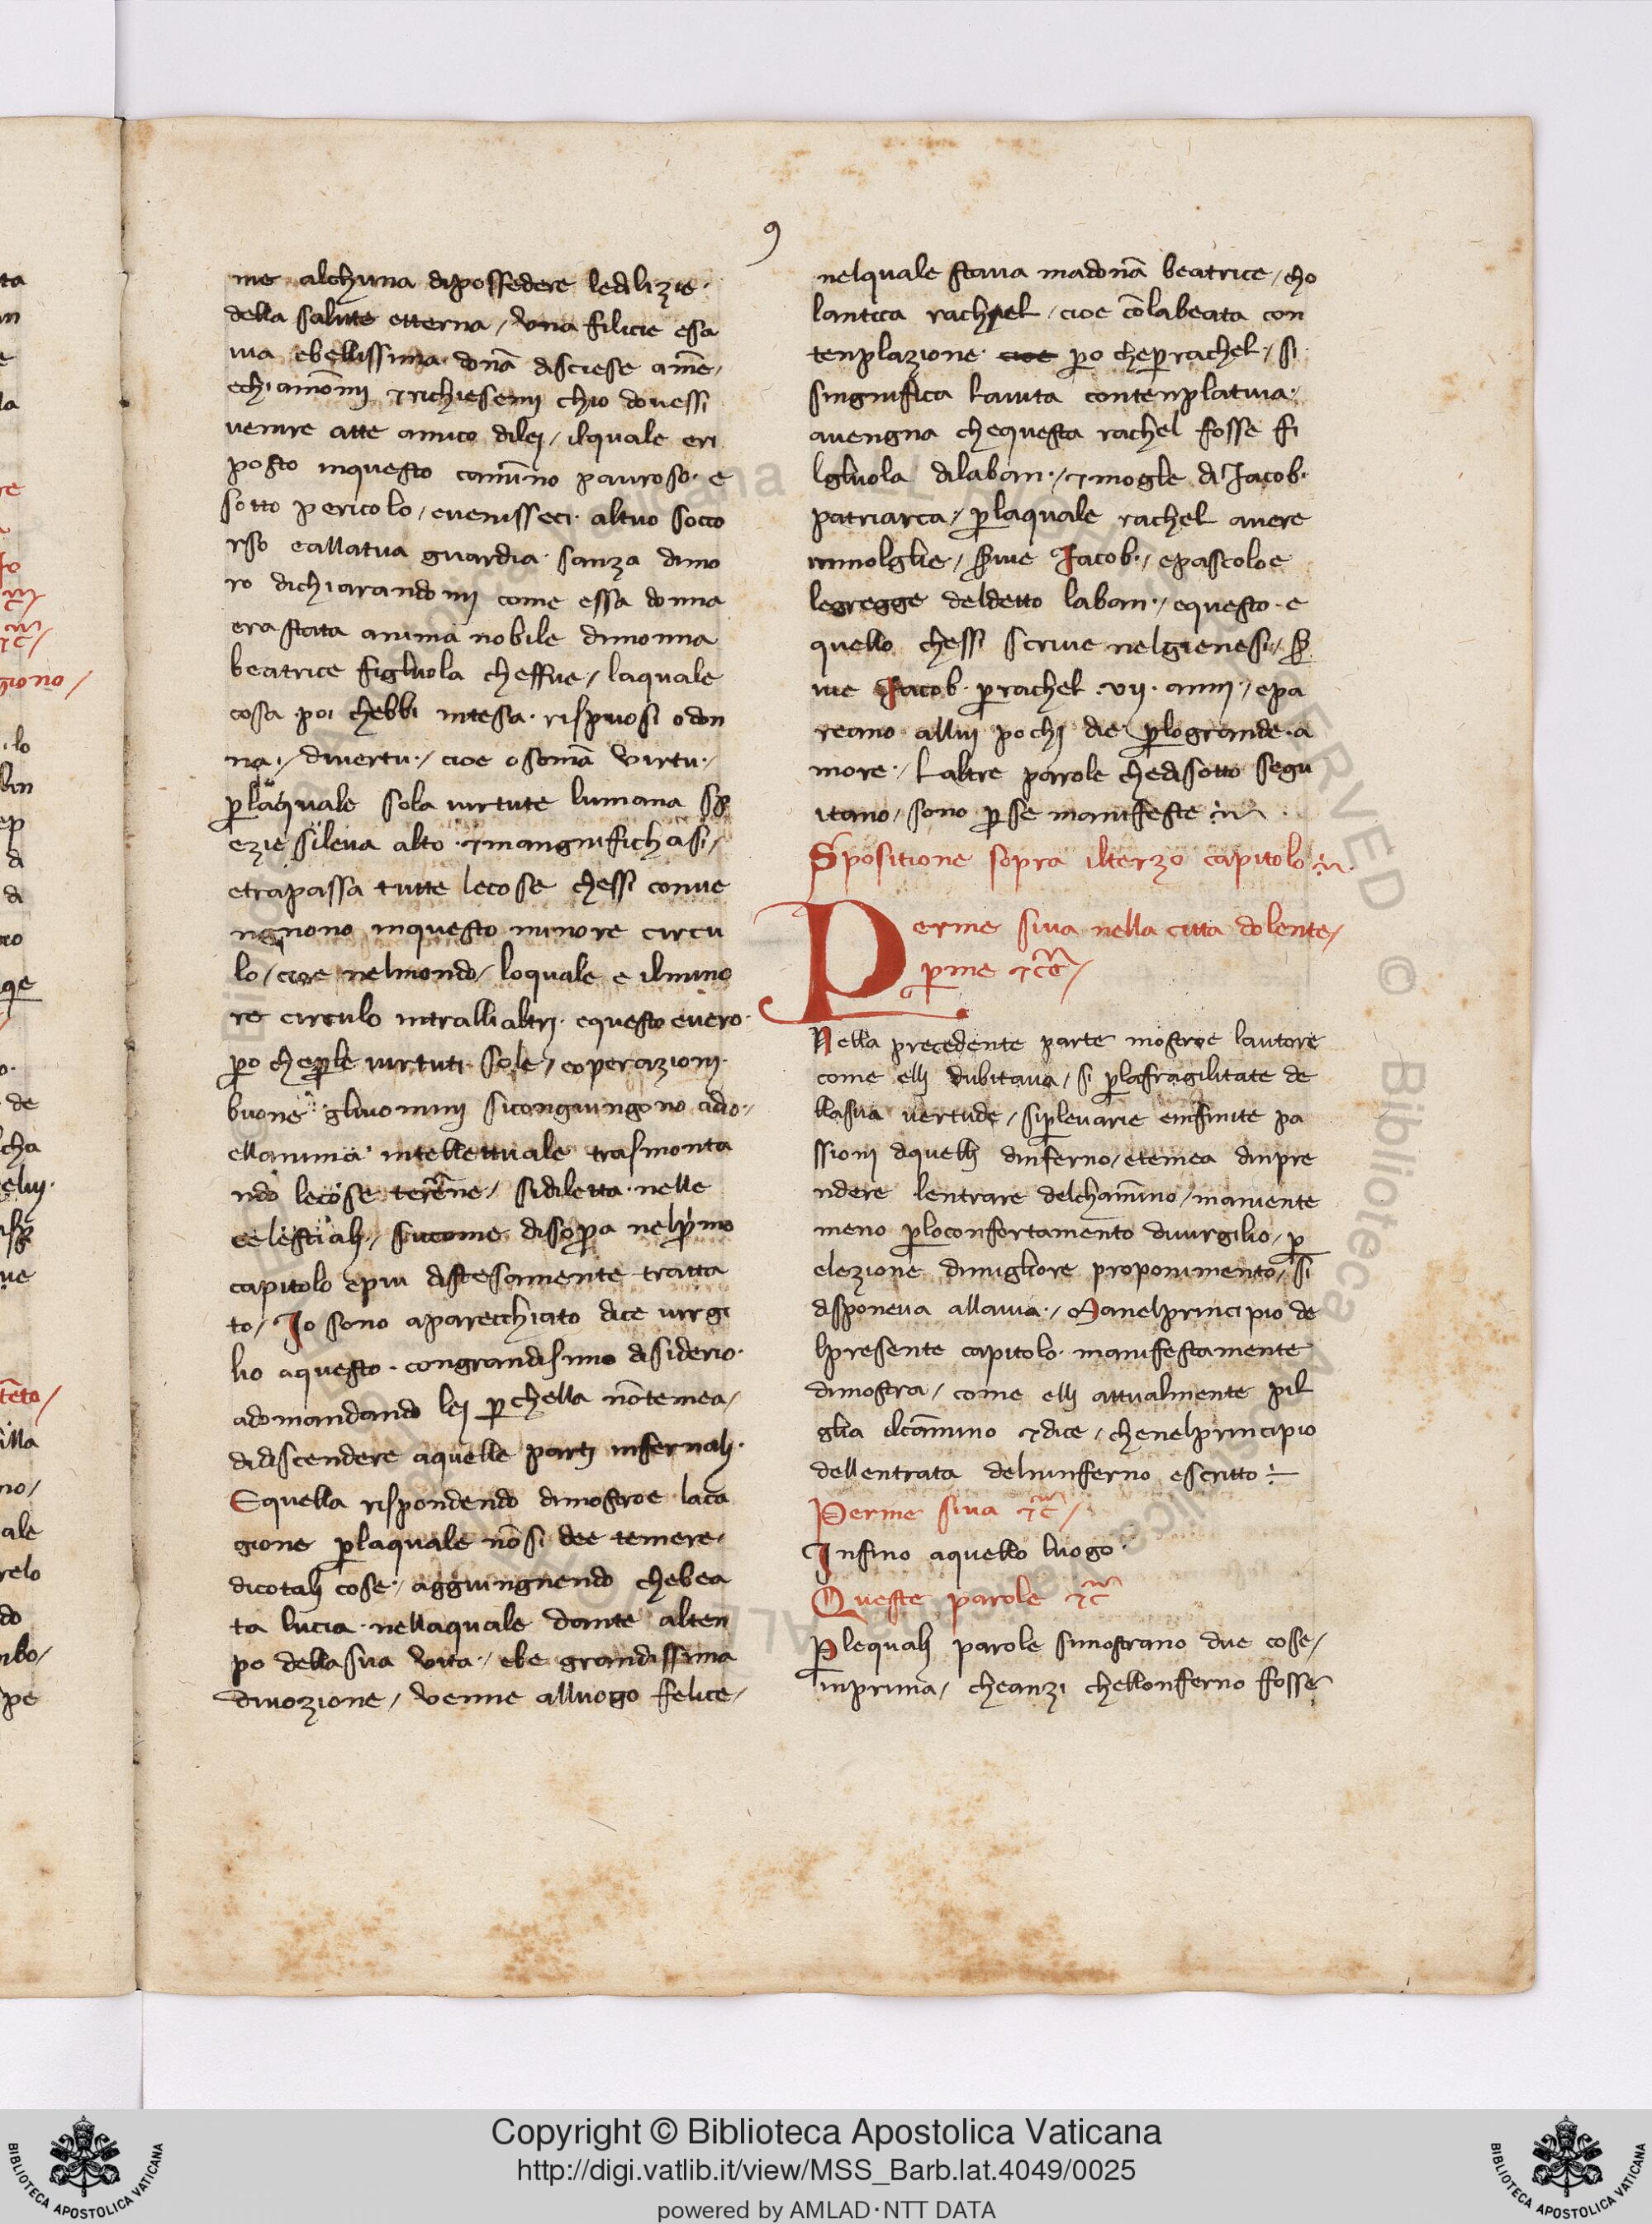 9
me alchuna dipossedere ledilizie·
della salute etterna / vna filicie esa
uia ebellissima· donā disciese amē /
echiamōmi ⁊richiesemi chio douessi
uenire atte amico dilei / ilquale eri
posto inquesto camīno pauroso· e
sotto pericolo / euenisseci· altuo socco
rso eallatua guardia· sanza dimo
ro dichiarandomi come essa donna
era stata anima nobile dimonna
beatrice figluola cheffue / laquale
cosa poi chebbi intesa· rispuosi odon
na·/ diuertu·/ cioe osomā virtu·/
ꝑlaquale sola uirtute lumana sp
ezie sileua alto· ⁊mangnifichasi /
etrapassa tutte lecose chessi conue
ngnono inquesto minore circu
lo / cioe nelmondo / loquale e ilmino
re circulo intralli altri· equesto euero·
ꝑo cheꝑle uirtuti· sole / eoperazioni·
buone· gluomini sicongiungono adio·/
ellanima· intellettuale trasmonta
ndo lecose terēne / sidiletta· nelle
celestiali·/ siccome disopra nelprimo
capitolo epiu distesamente tratta
to / Io sono aparecchiato dice uirgi
lio aquesto· congrandisimo disiderio·
adomandando lei ꝑchella nōtemea /
didiscendere aquelle parti infernali·
Equella rispondendo dimostroe laca
gione ꝑlaquale nōsi dee temere·
dicotali cose·/ aggiungnendo chebea
ta lucia· nellaquale dante alten
po dellasua vita·/ ebe grandissima
diuozione / venne alluogo felice /
nelquale staua madonā beatrice / cho
lantica rachel / cioe cōlabeata con
tenplazione· cioe ꝑo cheꝑrachel / si
singnifica lauita contenplatiua·/
auengna chequesta rachel fosse fi
lgluola dilaban·/ ⁊mogle di Jacob·
patriarca / ꝑlaquale rachel auere
inmolglie / ẜuie Jacob·/ epascoloe
legregge deldetto laban·/ equesto· e
quello chessi scriue nelgienesi·/ ẜ
uie Jacob· ꝑrachel ·vii· anni·/ epa
reano allui pochi die ꝑlogrande· a
more·/ laltre parole chedisotto segu
itano / sono ꝑse manifeste
Spositione sopra ilterzo capitolo
Perme siua nella citta dolente /
ꝑme ⁊c̄ /
Nella precedente parte mostroe lautore
come elli dubitaua / si ꝑlafragilitate de
llasua uertude / siꝑleuarie einfinite pa
ssioni diquelli dinferno / etemea dinpre
ndere lentrare delchamīno / maniente
meno ꝑloconfortamento diuirgilio / ꝑ
elezione dimigliore proponimento / si
disponeua allauia·/ Manelprincipio de
lpresente capitolo· manifestamente
dimostra / come elli attualmente pil
glia ilcāmino ⁊dice / chenelprincipio
dellentrata delninferno escritto
Perme siua ⁊c̄ /
Infino aquello luogo·
Queste parole ⁊c̄
Ꝑlequali parole simostrano due cose /
inprima / cheanzi chellonferno fosse
Copyright © Biblioteca Apostolica Vaticana
http://digi.vatlib.it/view/MSS_Barb.lat.4049/0025
powered by AMLAD·NTT DATA
BIBLIOTECA APOSTOLICA VATICANA
BIBLIOTECA APOSTOLICA VATICANA